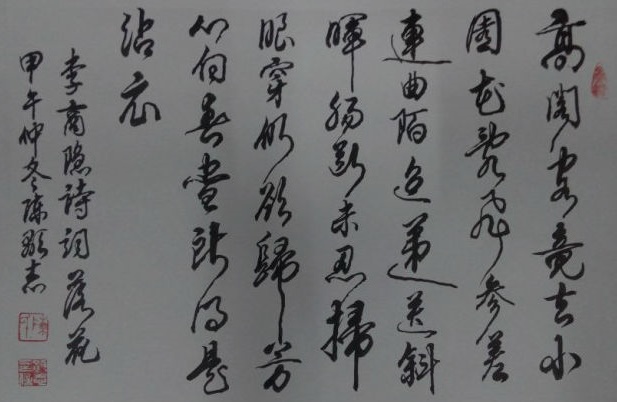 高阁客竟去小
园花乱飛参差
連曲陌迢递送斜
暉肠断未忍掃
眼穿仍欲歸芳
心向春尽所得是
沾衣
李商隐诗词落花
甲午仲冬陈志